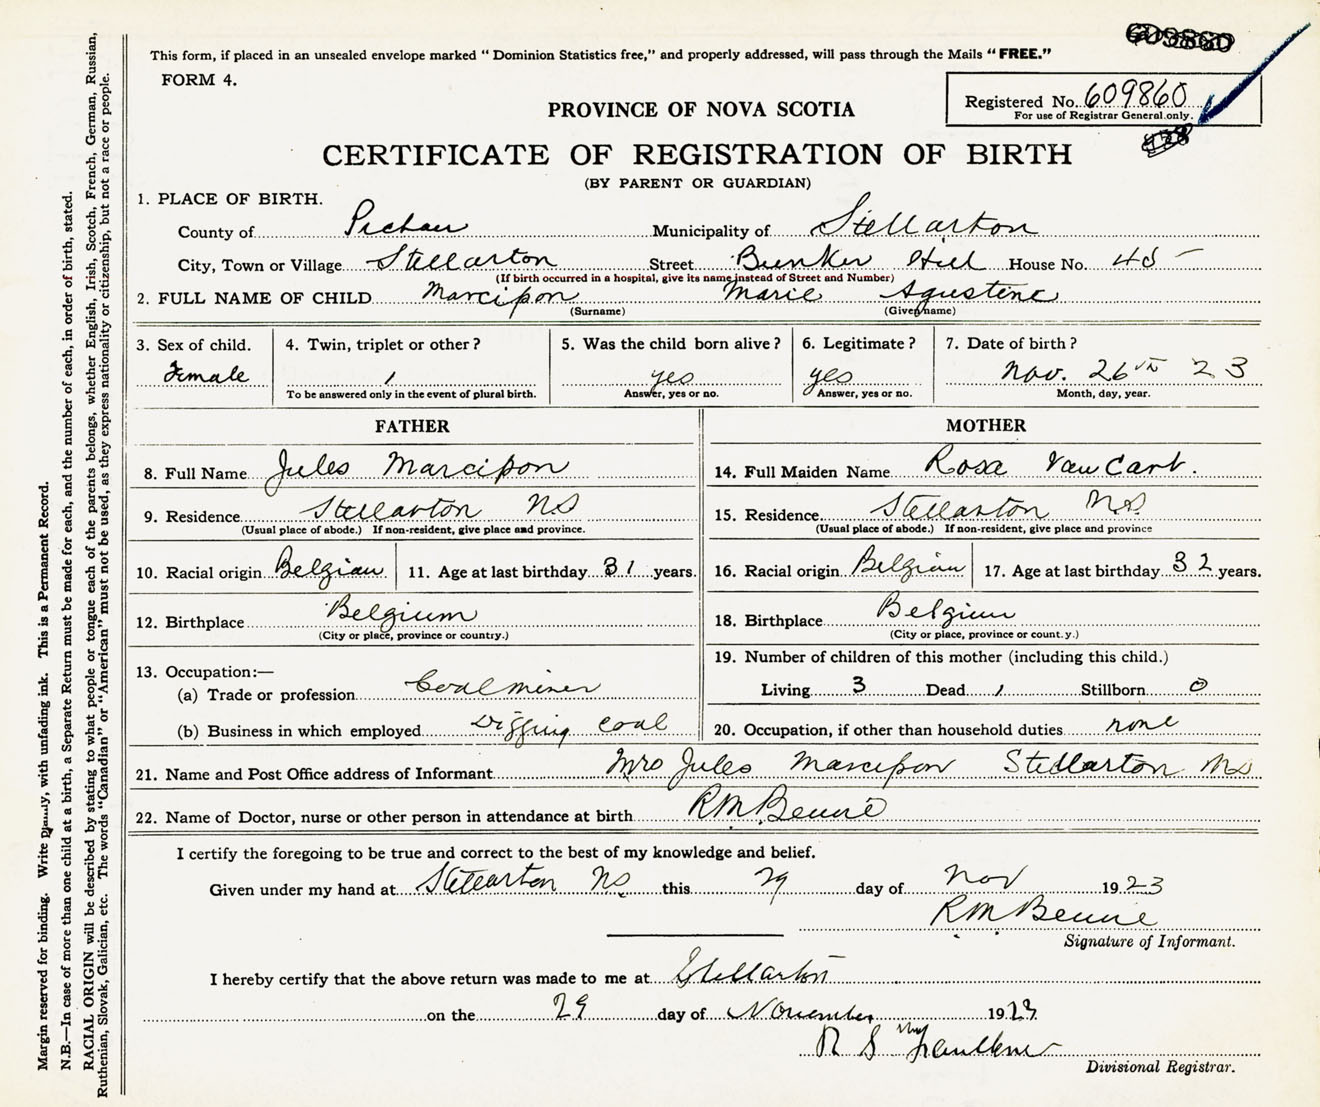 This form, if placed in an unsealed envelope marked "Dominion Statistics free," and properly addressed, will pass through the Mails "FREE."
FORM 4.
Registered No. 609860
For use of Registrar General only.
PROVINCE OF NOVA SCOTIA
CERTIFICATE OF REGISTRATION OF BIRTH
(BY PARENT OR GUARDIAN)
1. PLACE OF BIRTH.
County of Pictou Municipality of Stellarton
City, Town or Village Stellarton Street Bunker Hill House No.
(If birth occurred in a hospital, give its name instead of Street and Number)
2. FULL NAME OF CHILD Marcipon Marie Agustene
(Surname) (Given name)
3. Sex of child. 4. Twin, triplet or other? 5. Was the child born alive? 6. Legitimate? 7. Date of birth?
Female 1 yes yes Nov. 26th 23
To be answered only in the event of plural birth. Answer, yes or no. Answer, yes or no. Month, day, year.
FATHER
8. Full Name Jules Marcipon
9. Residence Stellarton NS
(Usual place of abode.) If non-resident, give place and province.
10. Racial origin Belgian 11. Age at last birthday 31 years.
12. Birthplace Belgium
(City or place, province or country.)
13. Occupation:—
(a) Trade or profession Coalminer
(b) Business in which employed Digging coal
MOTHER
14. Full Maiden Name Rosa
15. Residence Stellarton N.S.
(Usual place of abode.) If non-resident, give place and province
16. Racial origin Belgian 17. Age at last birthday 32 years.
18. Birthplace Belgium
(City or place, province or country.)
19. Number of children of this mother (including this child.)
Living 3 Dead 1 Stillborn 0
20. Occupation, if other than household duties none
21. Name and Post Office address of Informant Mrs Jules Marcipon Stellarton NS
22. Name of Doctor, nurse or other person in attendance at birth RM
I certify the foregoing to be true and correct to the best of my knowledge and belief.
Given under my hand at Stellarton NS this 29 day of Nov 1923
RM
Signature of Informant.
I hereby certify that the above return was made to me at Stellarton
on the 29 day of November 1923
R S Faulkner
Divisional Registrar.
Margin reserved for binding. Write plainly, with unfading ink. This is a Permanent Record.
N.B.—In case of more than one child at a birth, a Separate Return must be made for each, and the number of each, in order of birth, stated.
RACIAL ORIGIN will be described by stating to what people or tongue each of the parents belongs, whether English, Irish, Scotch, French, German, Russian,
Ruthenian, Slovak, Galician, etc. The words "Canadian" or "American" must not be used, as they express nationality or citizenship, but not a race or people.